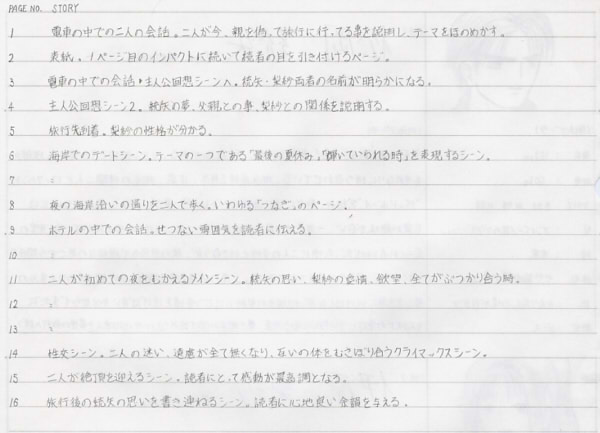 PAGE NO. STORY
1 電車の中での二人の会話。二人が今、親を偽って旅行に行ってる事を説明し、テーマをほのめかす。
2 表紙。1ページ目のインパクトに続いて読者の目を引き付けるページ。
3 電車の中での会話→主人公回想シーンへ。統矢・梨紗両者の名前が明らかになる。
4 主人公回想シーン2。統矢の夢、父親との事、梨紗との関係を説明する。
5 旅行先到着。梨紗の性格が分かる。
6 海岸でのデートシーン。テーマの一つである「最後の夏休み」「輝いていられる時」を表現するシーン。
7 :
8 夜の海岸沿いの通りを二人で歩く。いわゆる「つなぎ」のページ。
9 ホテルの中での会話。せつない雰囲気を読者に伝える。
10 :
11 二人が初めての夜をむかえるメインシーン。統矢の思い、梨紗の愛情、欲望、全てがぶつかり合う時。
12 :
13 :
14 性交シーン。二人の迷い、遠慮が全て無くなり、互いの体をむさぼり合うクライマックスシーン。
15 二人が絶頂を迎えるシーン。読者にとって感動が最高調となる。
16 旅行後の統矢の思いを書き連ねるシーン。読者に心地良い余韻を与える。